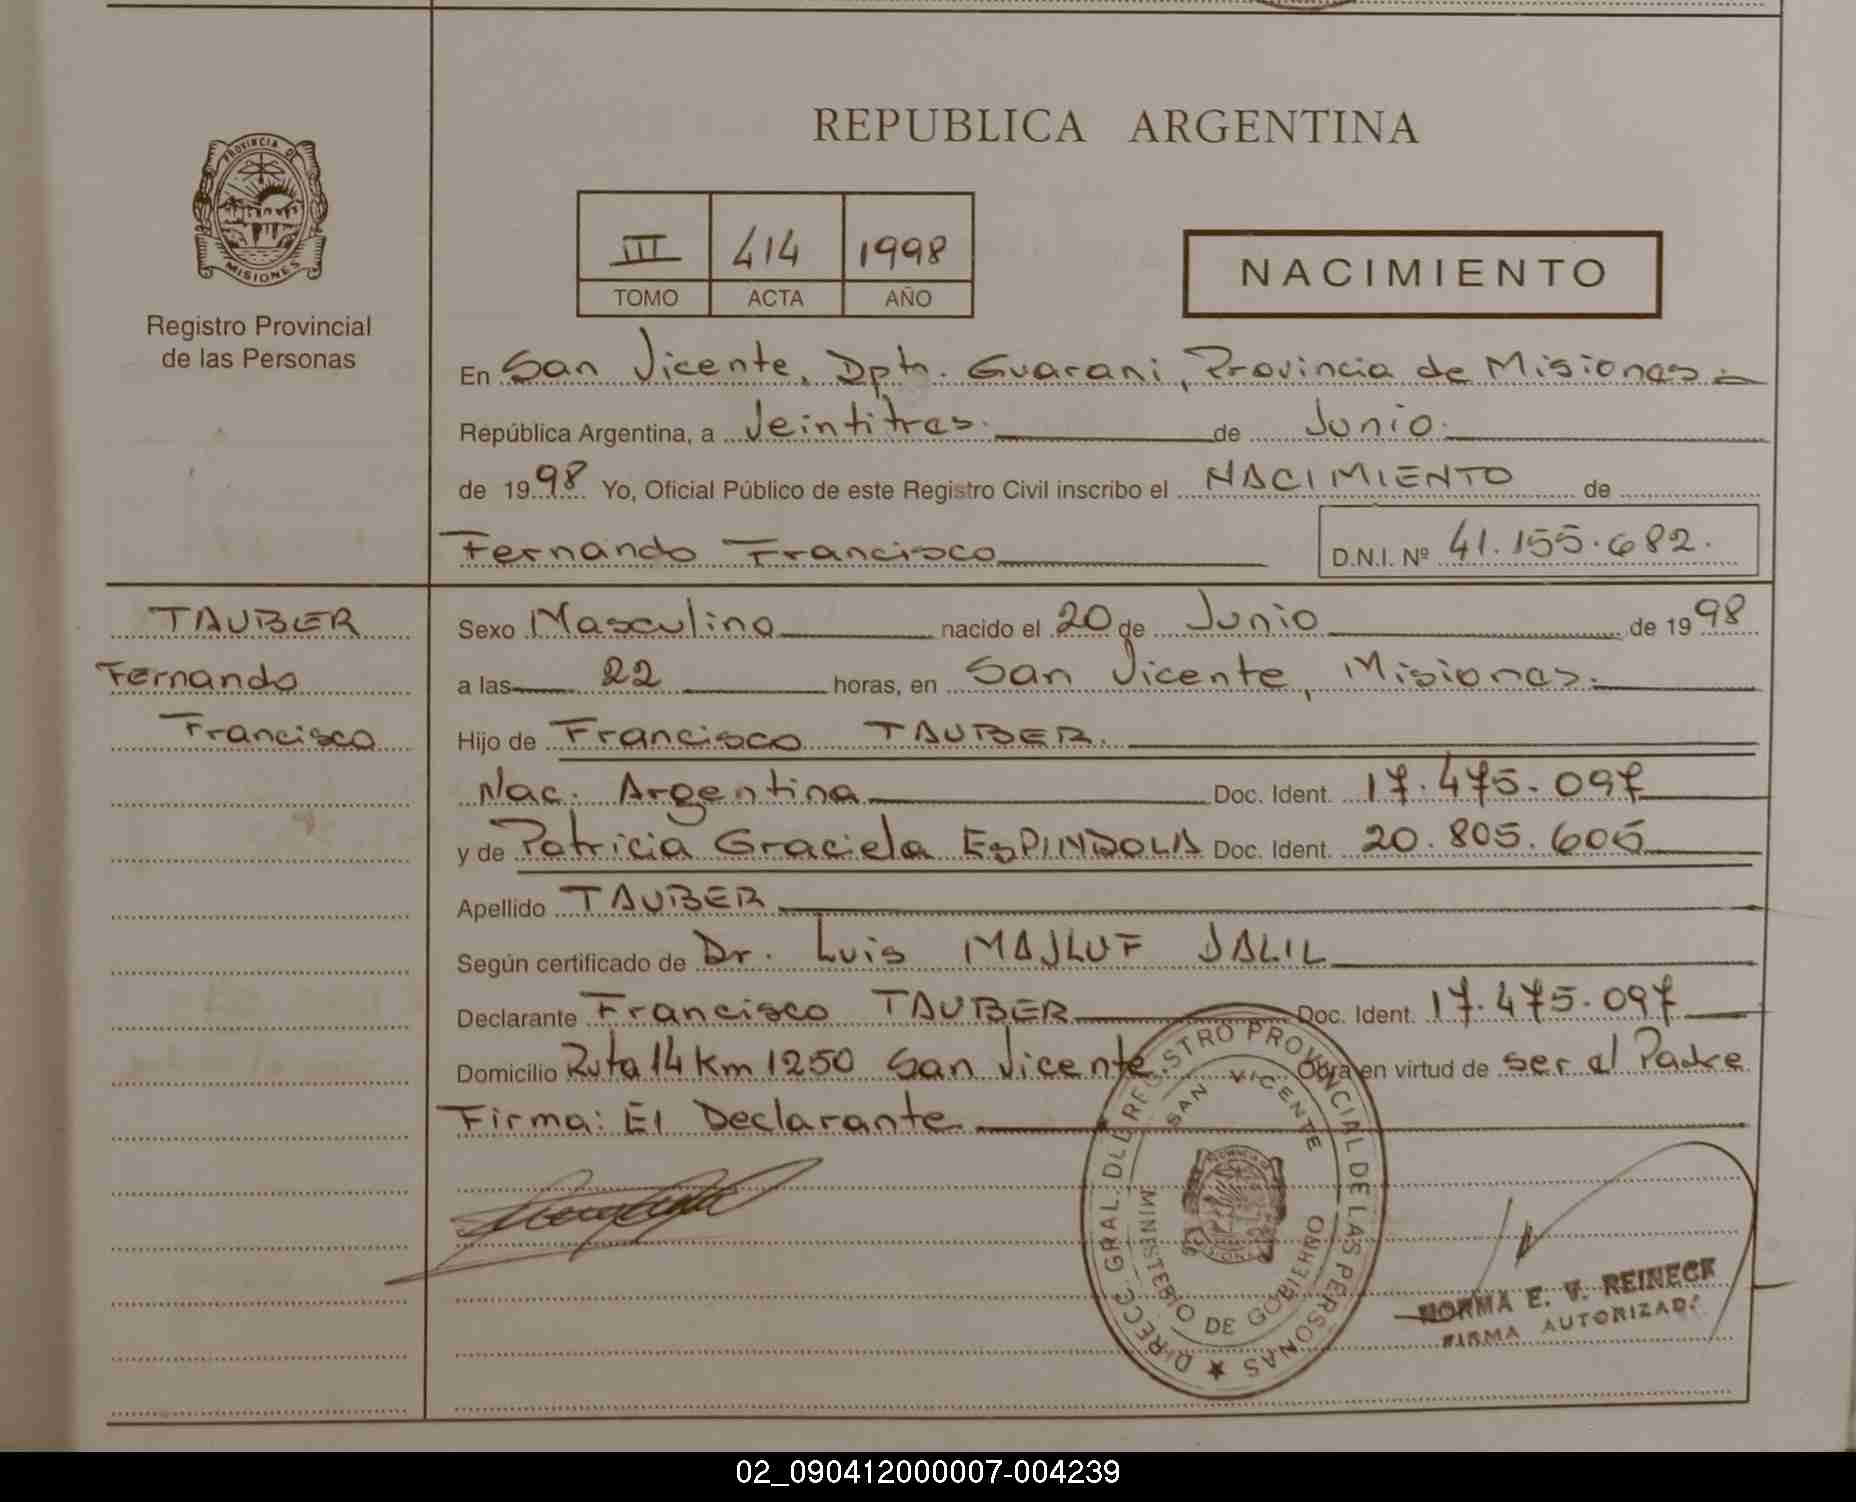 REPUBLICA ARGENTINA
PROVINCIA DE
MISIONES
Registro Provincial
de las Personas
III 414 1998
TOMO ACTA AÑO
NACIMIENTO
En San Vicente, Dpto. Guarani, Provincia de Misiones
República Argentina, a Veintitres. de Junio.
de 1998 Yo, Oficial Público de este Registro Civil inscribo el NACIMIENTO de
Fernando Francisco D.N.I. Nº 41.155.682.
TAUBER
Fernando
Francisco
Sexo Masculino nacido el 20 de Junio de 1998
a las 22 horas, en San Vicente, Misiones.
Hijo de Francisco TAUBER.
Nac. Argentina Doc. Ident. 17.475.097
y de Patricia Graciela ESPINDOLA Doc. Ident. 20.805.605
Apellido TAUBER
Según certificado de Dr. Luis MAJLUF JALIL
Declarante Francisco TAUBER Doc. Ident. 17.475.097
Domicilio Ruta 14 Km 1250 San Vicente. Obra en virtud de ser el Padre
Firma: El Declarante
DIRECC. GRAL. DEL REGISTRO PROVINCIAL DE LAS PERSONAS
SAN VICENTE
MINISTERIO DE GOBIERNO
NORMA E. V. REINECK
FIRMA AUTORIZADA
02_090412000007-004239